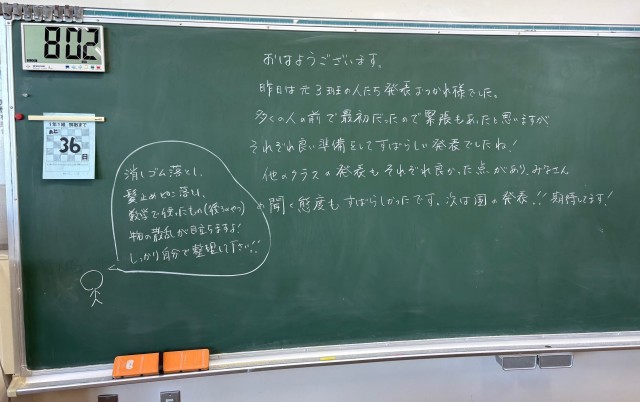 802
1年1組 解散まで
あと
36
日
おはようございます。
昨日は元3班の人たち発表おつかれ様でした。
多くの人の前で最初だったので緊張もあったと思いますが
それぞれ良い準備をしてすばらしい発表でしたね!
他のクラスの発表もそれぞれ良かった点があり、みなさん
の聞く態度もすばらしかったです。次は国の発表!! 期待してます!
消しゴム落とし、
髪止めやゴム落とし、
数学で使ったもの
物の散乱が目立ちますよ!
しっかり自分で整理して下さい!!